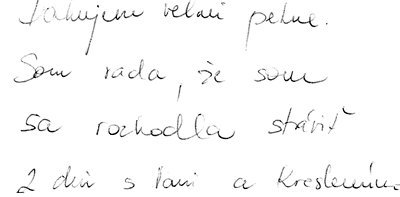 Ďakujem veľmi pekne.
Som rada, že som
sa rozhodla stráviť
2 dni s Vami a Kreslením